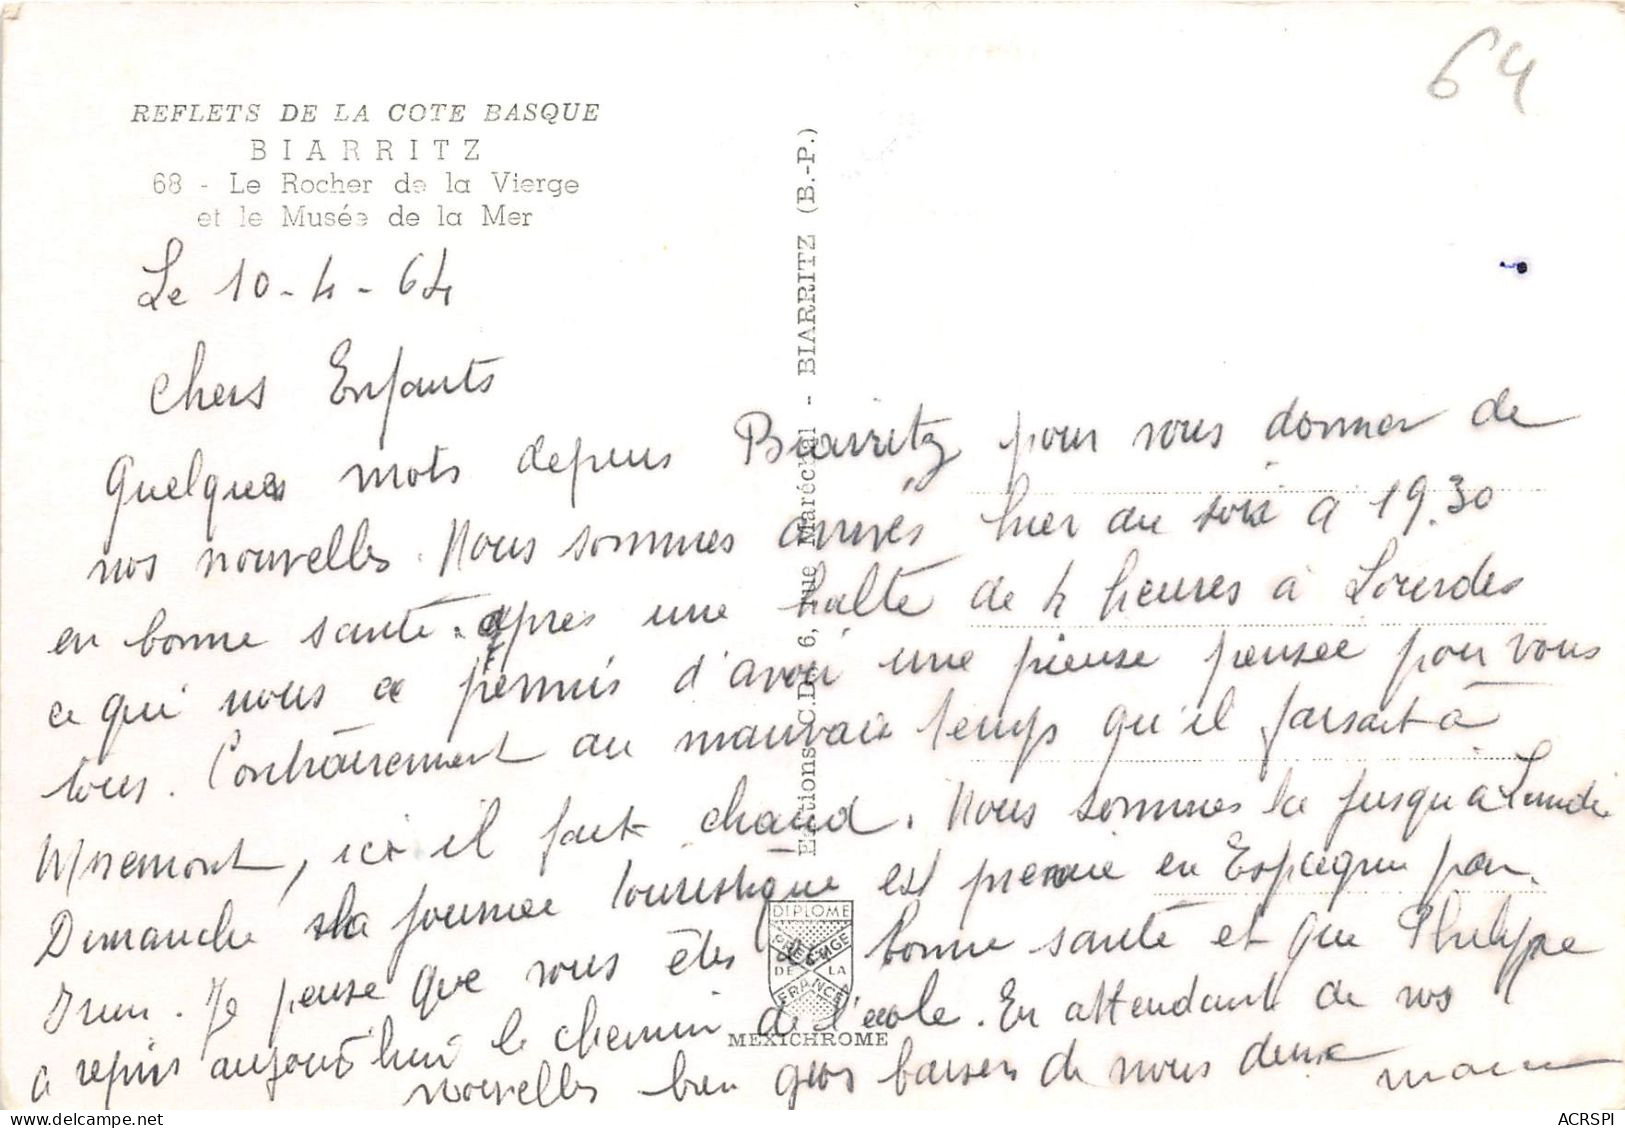 64
REFLETS DE LA COTE BASQUE
BIARRITZ
68 - Le Rocher de la Vierge
et le Musée de la Mer
Le 10-4-64
Chers Enfants
Quelques mots depuis Biarritz pour vous donner de
nos nouvelles. Nous sommes arrivés hier au soir à 19.30
en bonne santé. après une halte de 4 heures à Lourdes
ce qui nous a permis d'avoir une pieuse pensee pour vous
tous. Contrairement au mauvais temps qu'il faisait à
Miremont, ici il fait chaud. Nous sommes la jusqu'a Lundi
Dimanche la journee touristique est prevue en Espagne par
Irun. Je pense que vous êtes en bonne santé et que Philippe
a repris aujourd'hui le chemin de l'école. En attendant de vos
nouvelles bien gros baisers de nous deux
Editions C.D. 6, rue Maréchal - BIARRITZ (B.-P.)
DIPLOME
PRESTIGE
DE LA
FRANCE
MEXICHROME
ACRSPI